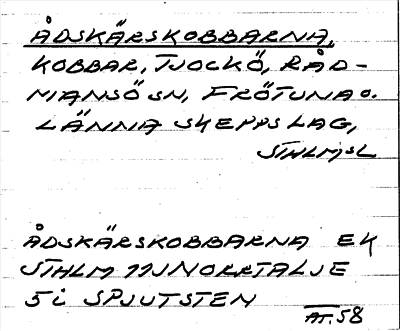 ÅDSKÄRSKOBBARNA,
KOBBAR, TJOCKÖ, RÅD-
MANSÖ SN, FRÖTUNA O.
LÄNNA SKEPPSLAG,
STHLMSL
ÅDSKÄRSKOBBARNA EK
STHLM 11JNORRTÄLJE
5i SPJUTSTEN
AT. 58